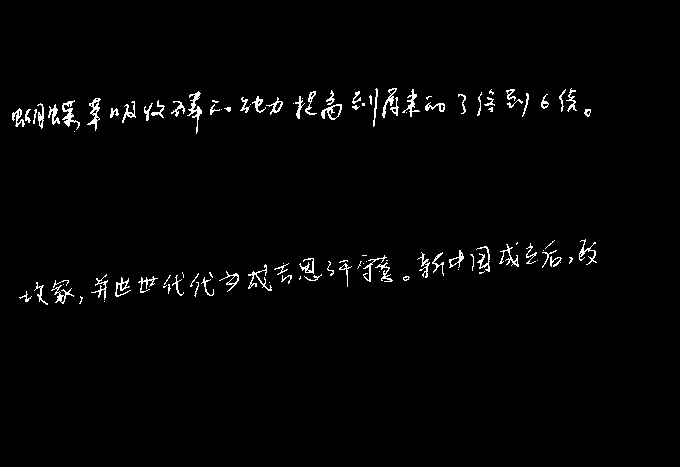 蝴蝶草吸收磷的能力提高到原来的3倍到6倍。
坟冢,并世世代代为成吉思汗守墓。新中国成立后,政